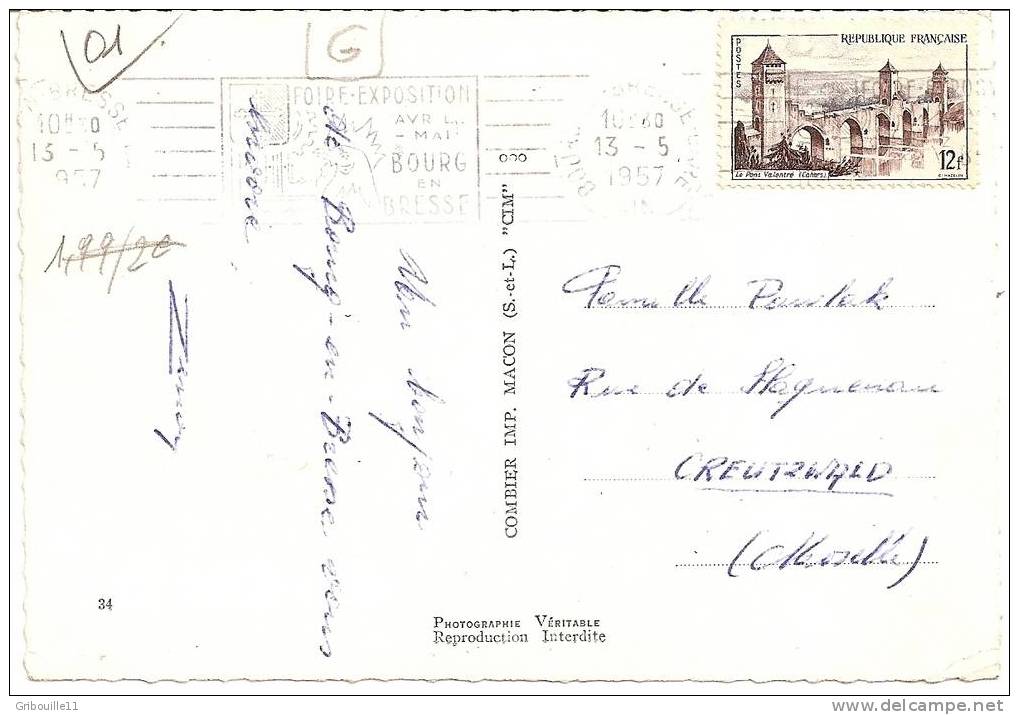 01
G
BRESSE
10H30
13 - 5
1957
FOIRE-EXPOSITION
AVRIL
- MAI
BOURG
EN
BRESSE
10H30
13 - 5
1957
RÉPUBLIQUE FRANÇAISE
POSTES
Le Pont Valentré (Cahors)
12F
Un bonjour
de Bourg-en-Bresse, vous
COMBIER IMP. MACON (S.-et-L.) "CIM"
Famille
Rue de Haguenau
CREUTZWALD
(Moselle)
34
PHOTOGRAPHIE VÉRITABLE
Reproduction Interdite
Gribouille11
delcampe.net